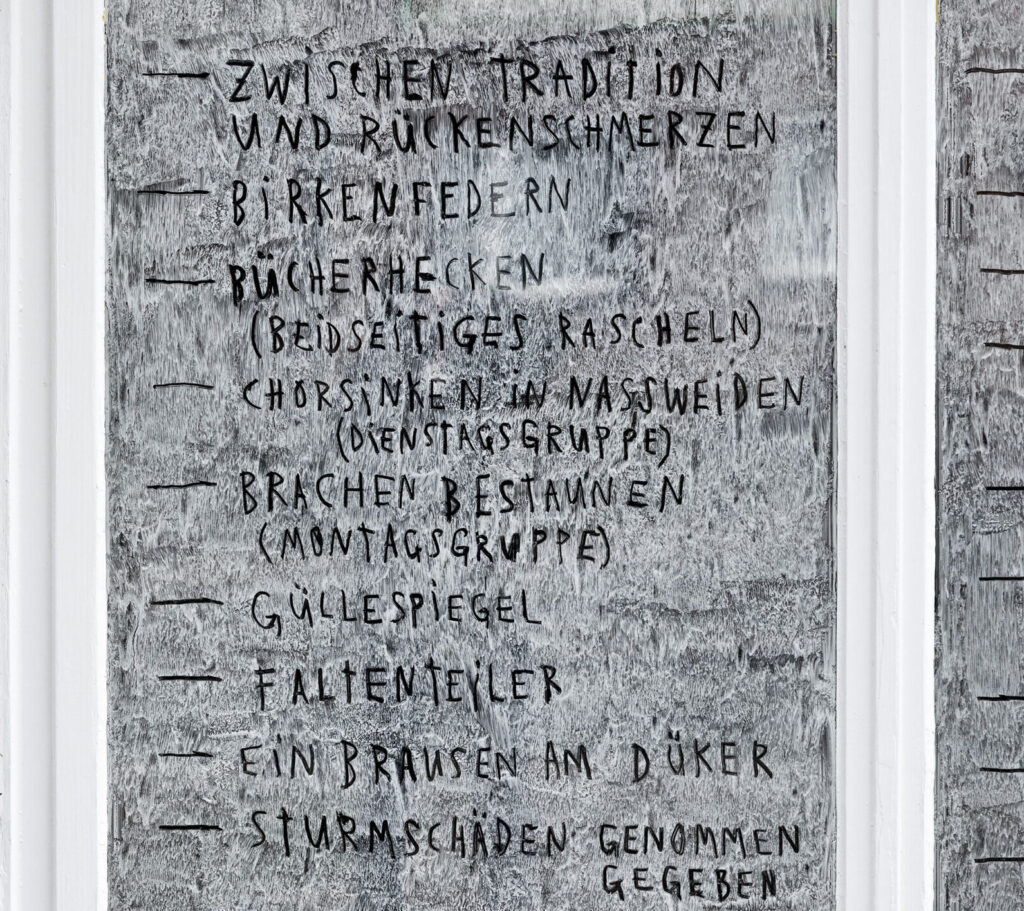 — ZWISCHEN TRADITION
UND RÜCKENSCHMERZEN
— BIRKENFEDERN
— BÜCHERHECKEN
(BEIDSEITIGES RASCHELN)
— CHORSINKEN IN NASSWEIDEN
(DIENSTAGSGRUPPE)
— BRACHEN BESTAUNEN
(MONTAGSGRUPPE)
— GÜLLESPIEGEL
— FALTENTEILER
— EIN BRAUSEN AM DÜKER
— STURMSCHÄDEN GENOMMEN
GEGEBEN